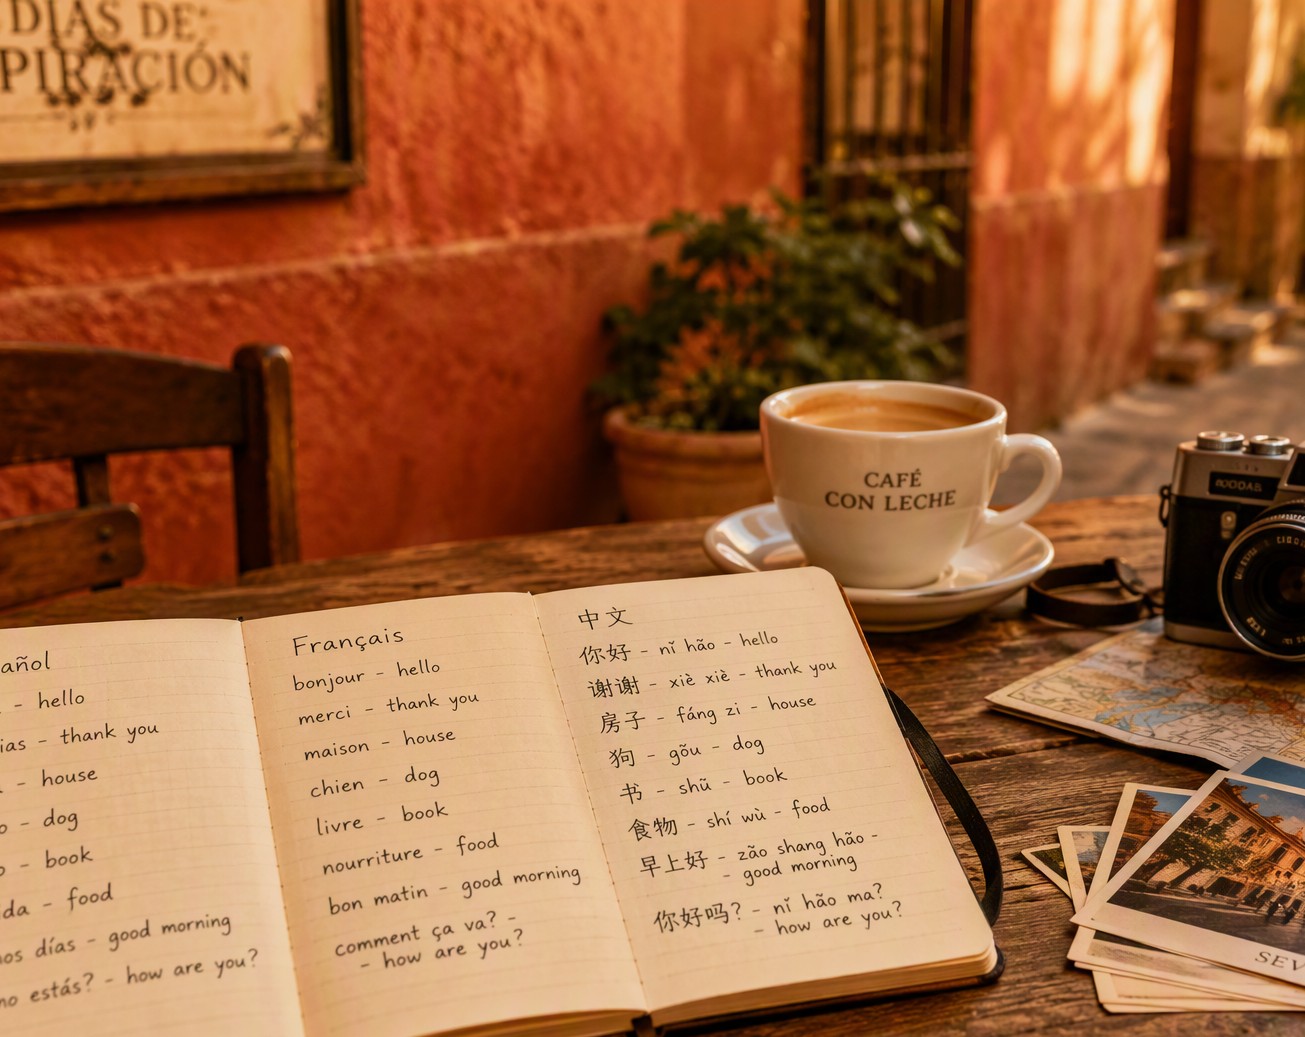 DÍAS DE
PIRACIÓN
CAFÉ
CON LECHE
añol
- hello
ias - thank you
- house
o - dog
o - book
da - food
nos días - good morning
no estás? - how are you?
Français
bonjour - hello
merci - thank you
maison - house
chien - dog
livre - book
nourriture - food
bon matin - good morning
comment ça va? -
- how are you?
中文
你好 - nǐ hão - hello
谢谢 - xiè xiè - thank you
房子 - fáng zi - house
狗 - gõu - dog
书 - shū - book
食物 - shí wù - food
早上好 - zão shang hão -
- good morning
你好吗? - nǐ hão ma?
- how are you?
SEV